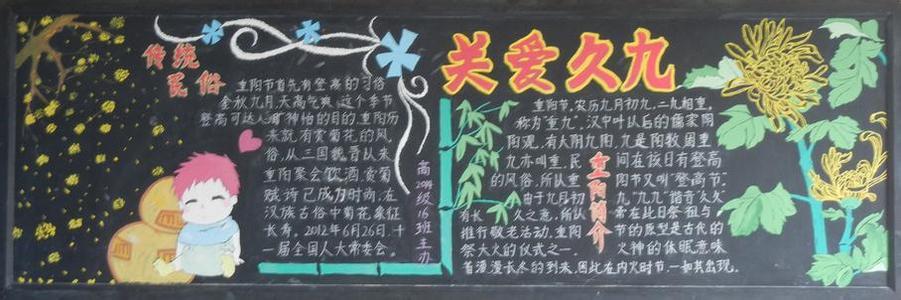 传统
民俗
重阳节首先有登高的习俗
金秋九月,天高气爽,这个季节
登高可达人 神怡的目的,重阳历
来就有赏菊花的风
俗,从三国魏晋以来
重阳聚会饮酒,赏菊
赋诗已成为时尚,在
汉族古俗中菊花象征
长寿。2012年6月26日,十
一届全国人大常委会。
高 级16班主办
关爱久九
重阳简介
重阳节,农历九月初九,二九相重,
称为"重九",汉中叶以后的儒家阴
阳观,有六阴九阳,九是阳数固重
九亦叫重 民间在该日有登高
的风俗,所以重阳节又叫"登高节"。
由于九月初九"九九"谐音"久久"
有长久之意,所以常在此日祭祖与
推行敬老活动,重阳节的原型是古代的
祭大火的仪式之一 火神的休眠意味
着漫漫长冬的到来,因此在内火时节,一如其出现,